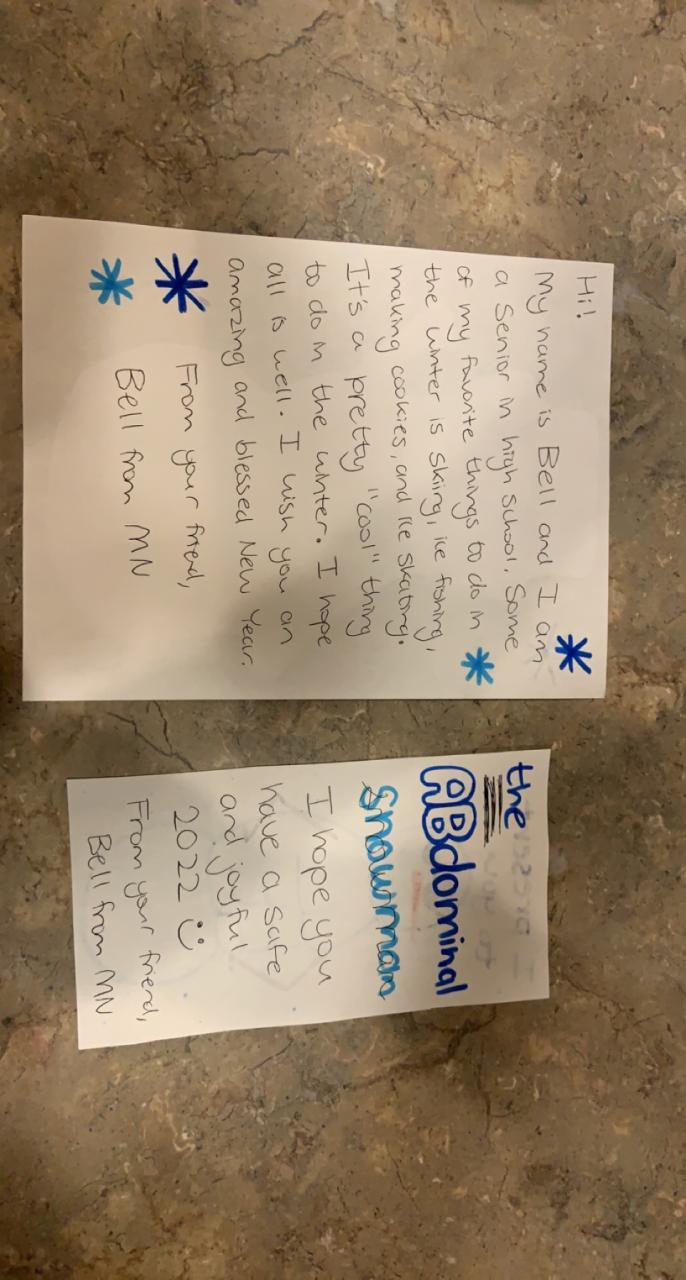 Hi!
My name is Bell and I am
a senior in high school. Some
of my favorite things to do in
the winter is skiing, ice fishing,
making cookies, and ice skating.
It's a pretty "cool" thing
to do in the winter. I hope
all is well. I wish you an
amazing and blessed New Year.
From your friend,
Bell from MN
the
ABdominal
Snowman
I hope you
have a safe
and joyful
2022 :)
From your friend,
Bell from MN